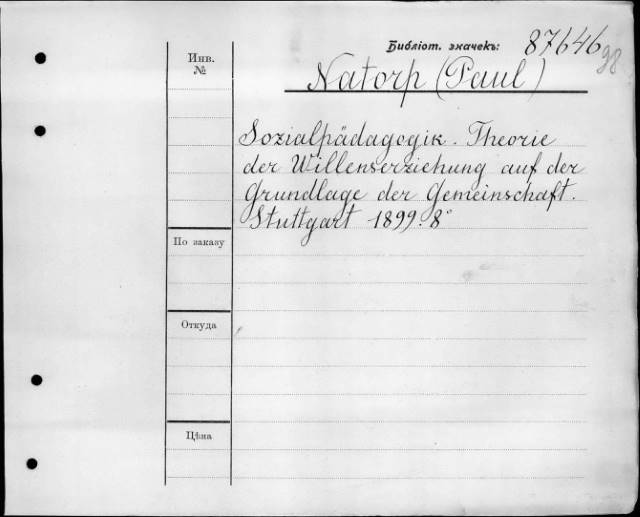 Библіот. значекъ: 87646
Инв.
№
Natorp (Paul)
Sozialpädagogik. Theorie
der Willenserziehung auf der
Grundlage der Gemeinschaft.
Stuttgart 1899. 8°
По заказу
Откуда
Цѣна